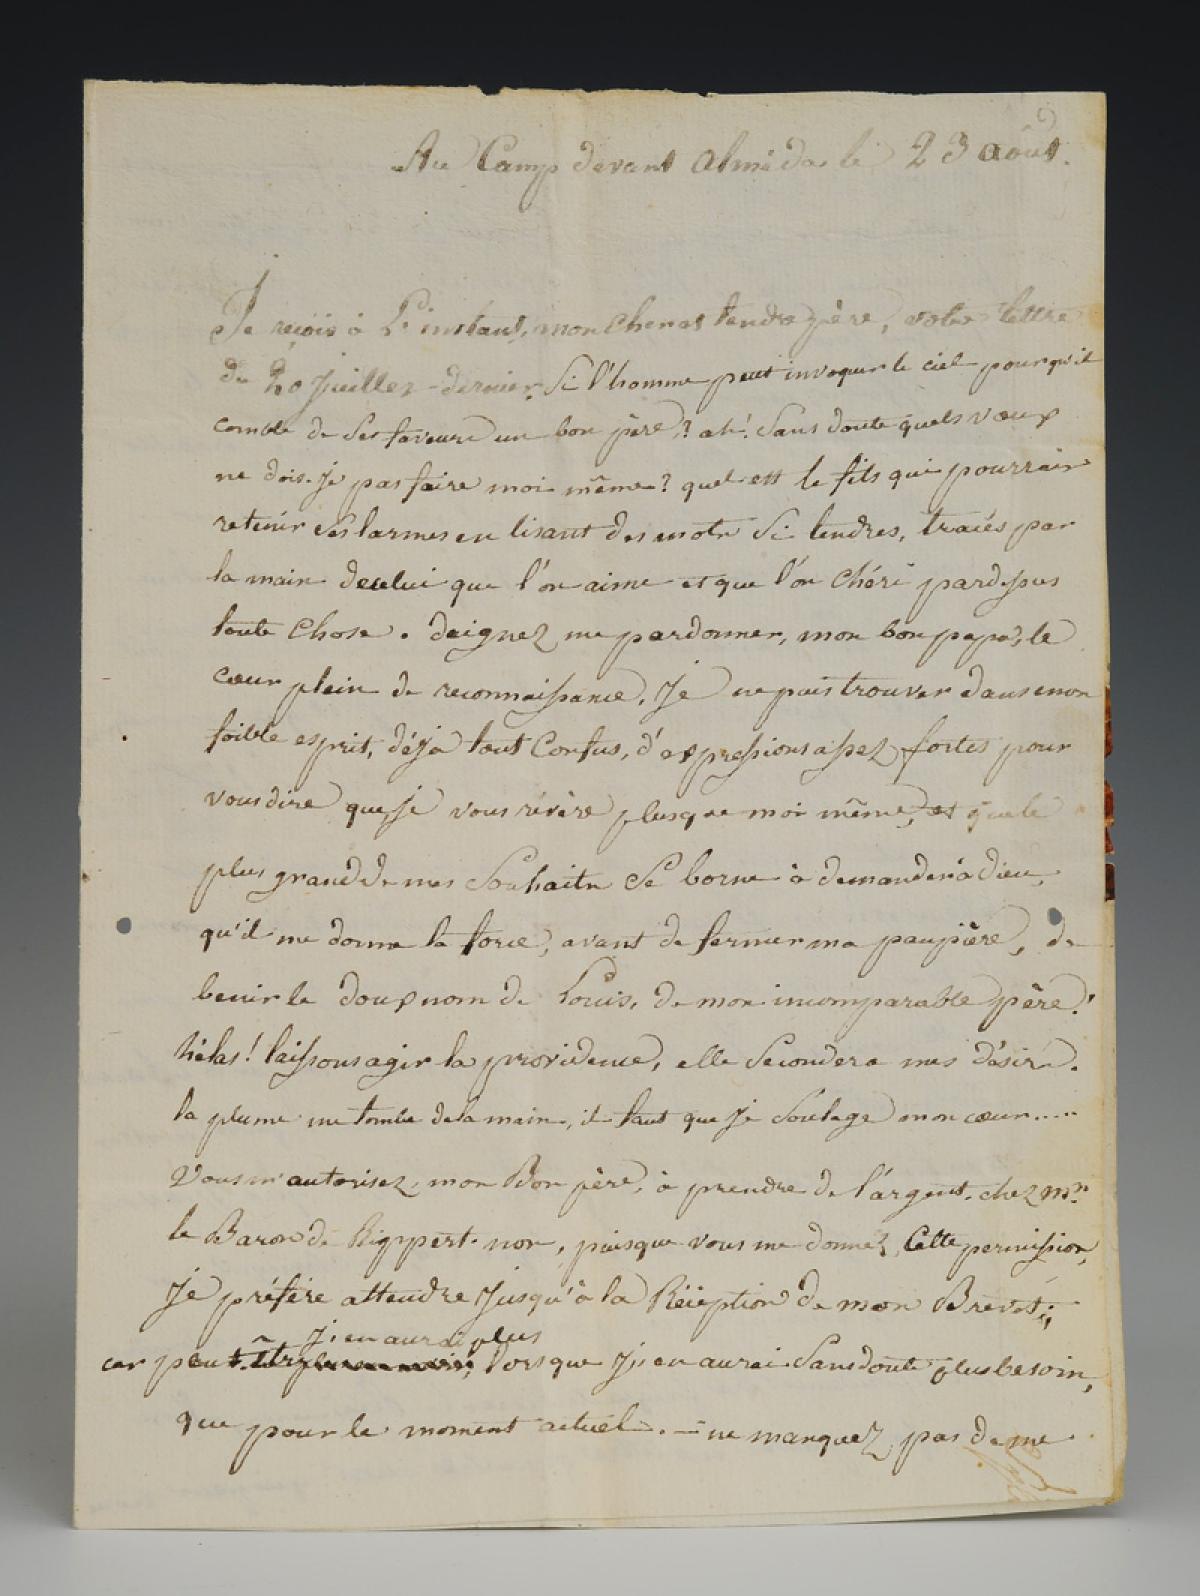 Au Camp devant alméida le 23 août.
Je reçois à l'instant, mon cher et tendre père, votre lettre
du 20 Juillet dernier. Si l'homme peut invoquer le ciel pour qu'il
comble de ses faveurs un bon père? ah! Sans doute quels vœux
ne dois-je pas faire moi même? quel est le fils qui pourrair
retenir ses larmes en lisant des mots si tendres, tracés par
la main de celui que l'on aime et que l'on chéri pardessus
toute chose. daignez me pardonner, mon bon papa, le
cœur plein de reconnaissance, Je ne puis trouver dans mon
foible esprit, déja tout confus, d'expressions assez fortes pour
vous dire que je vous révère plusque moi même, et que le
plus grand de mes Souhaits Se borne à demander à dieu,
qu'il me donne la force, avant de fermer ma paupière, de
benir le doux nom de Louis, de mon incomparable père!
hélas! laissons agir la providence, elle Secondera mes désirs.
la plume me tombe de la main, il faut que je Soulage mon cœur.....
Vous m'autorisez, mon Bon père, à prendre de l'argent chez Mr
le Baron de Rippert. non, puisque vous me donnez cette permission,
Je préfère attendre Jusqu'à la Réception de mon Brevet;
j'en aurai plus
car peut-être lorsque j'en aurai Sans doute plus besoin,
que pour le moment actuel. - ne manquez pas de me